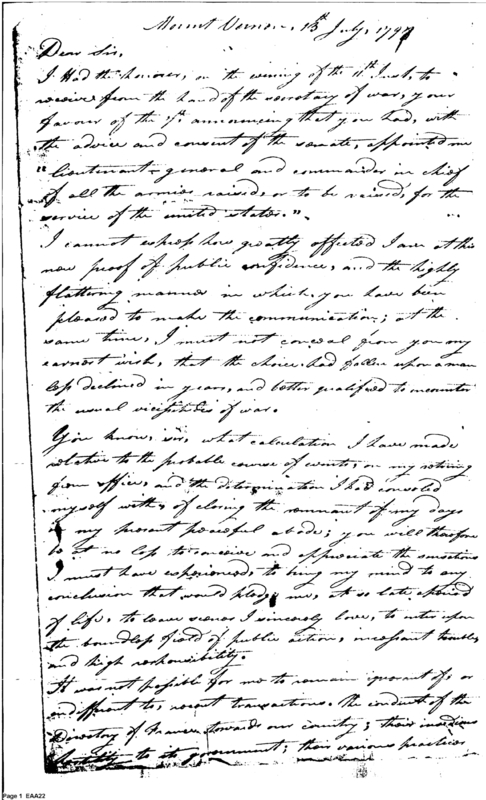 Mount Vernon, 13th July, 1798
Dear Sir,
I Had the honour, on the evening of the 11th Inst. to
receive from the hand of the secretary of war, your
favour of the 7th announcing that you had, with
the advice and consent of the senate, appointed me
"lieutenant-general and commander in chief
of all the armies raised, or to be raised, for the
service of the united states."
I cannot express how greatly affected I am at this
new proof of public confidence, and the highly
flattering manner in which you have been
pleased to make the communication; at the
same time, I must not conceal from you my
earnest wish, that the choice had fallen upon a man
less declined in years, and better qualified to encounter
the usual vicissitudes of war.
You know, sir, what calculation I have made
relative to the probable course of events, on my retiring
from office, and the determination I had consoled
myself with, of closing the remnant of my days
in my present peaceful abode; you will therefore
be at no loss to conceive and appreciate the sensations
I must have experienced, to bring my mind to any
conclusion that would pledge me, at so late a period
of life, to leave scenes I sincerely love, to enter upon
the boundless field of public action, incessant trouble,
and high responsibility.
It was not possible for me to remain ignorant of, or
indifferent to, recent transactions. The conduct of the
Directory of France towards our country; their insidious
hostility to its government; their various practices
Page 1 EAA22